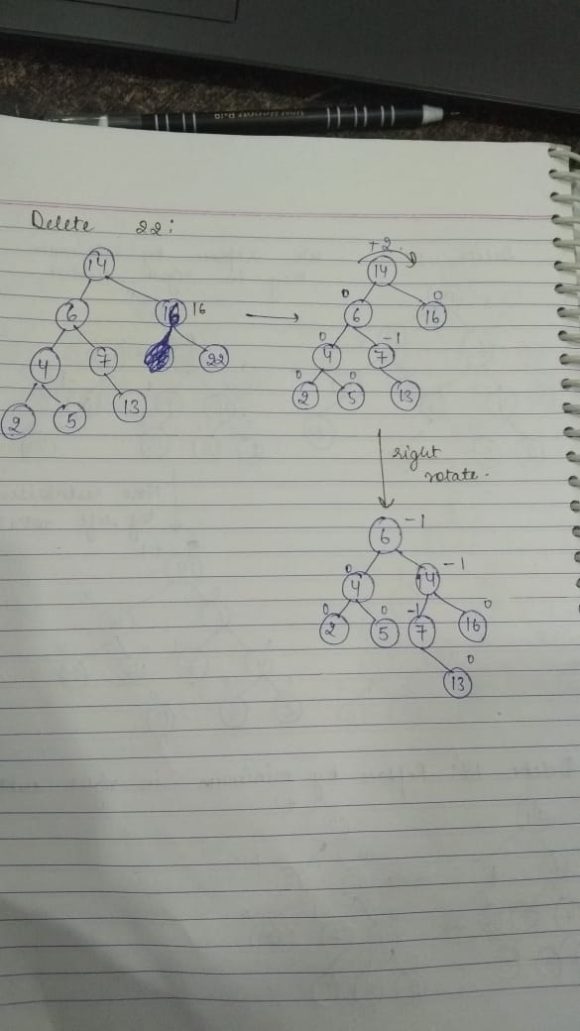 Delete 22:
14
6 16 16
4 7 22
2 5 13
+2
14
0 0
6 16
0 -1
4 7
0 0
2 5 13
right
rotate.
6 -1
0 -1
4 14
0 0 -1 0
2 5 7 16
0
13